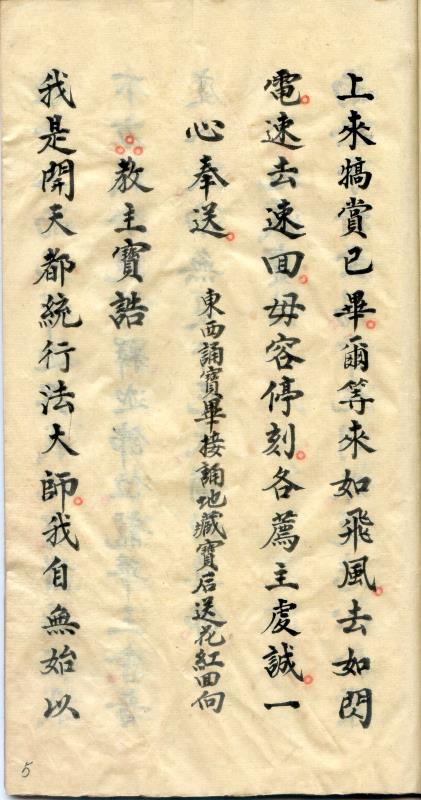 上來犒賞已畢爾等來如飛風去如閃
電速去速回毋容停刻各薦主虔誠一
心奉送
東西誦寶畢接誦地藏寶后送花紅回向
教主寶誥
我是開天都統行法大師我自無始以
5